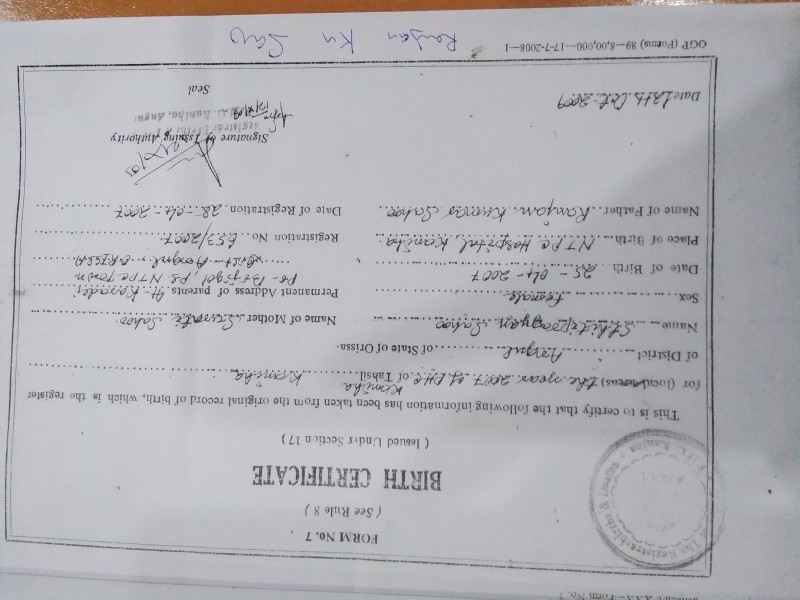 FORM No. 7
( See Rule 8 )
BIRTH CERTIFICATE
( Issued Under Section 17 )
This is to certify that the following information has been taken from the original record of birth, which is the register
for (local areas) the year 2007 of P.H.C Kaniha of Tahsil Kaniha
of District Angul of State of Orissa.
Name Sahoo Name of Mother Sahoo.
Sex female Permanent Address of parents. At-
Date of Birth 25-04-2007 PS NTPC Town
Dist-Angul, ORISSA
Place of Birth NTPC Hospital, Kaniha Registration No. 653/2007
Name of Father Ranjan Kumar Sahoo Date of Registration 28-04-2007
Signature of Issuing Authority
Date 12th Oct. 2009 Seal
OGP (Forms) 89—8,00,000—17-7-2008—1
Ranjan Ku Sahoo